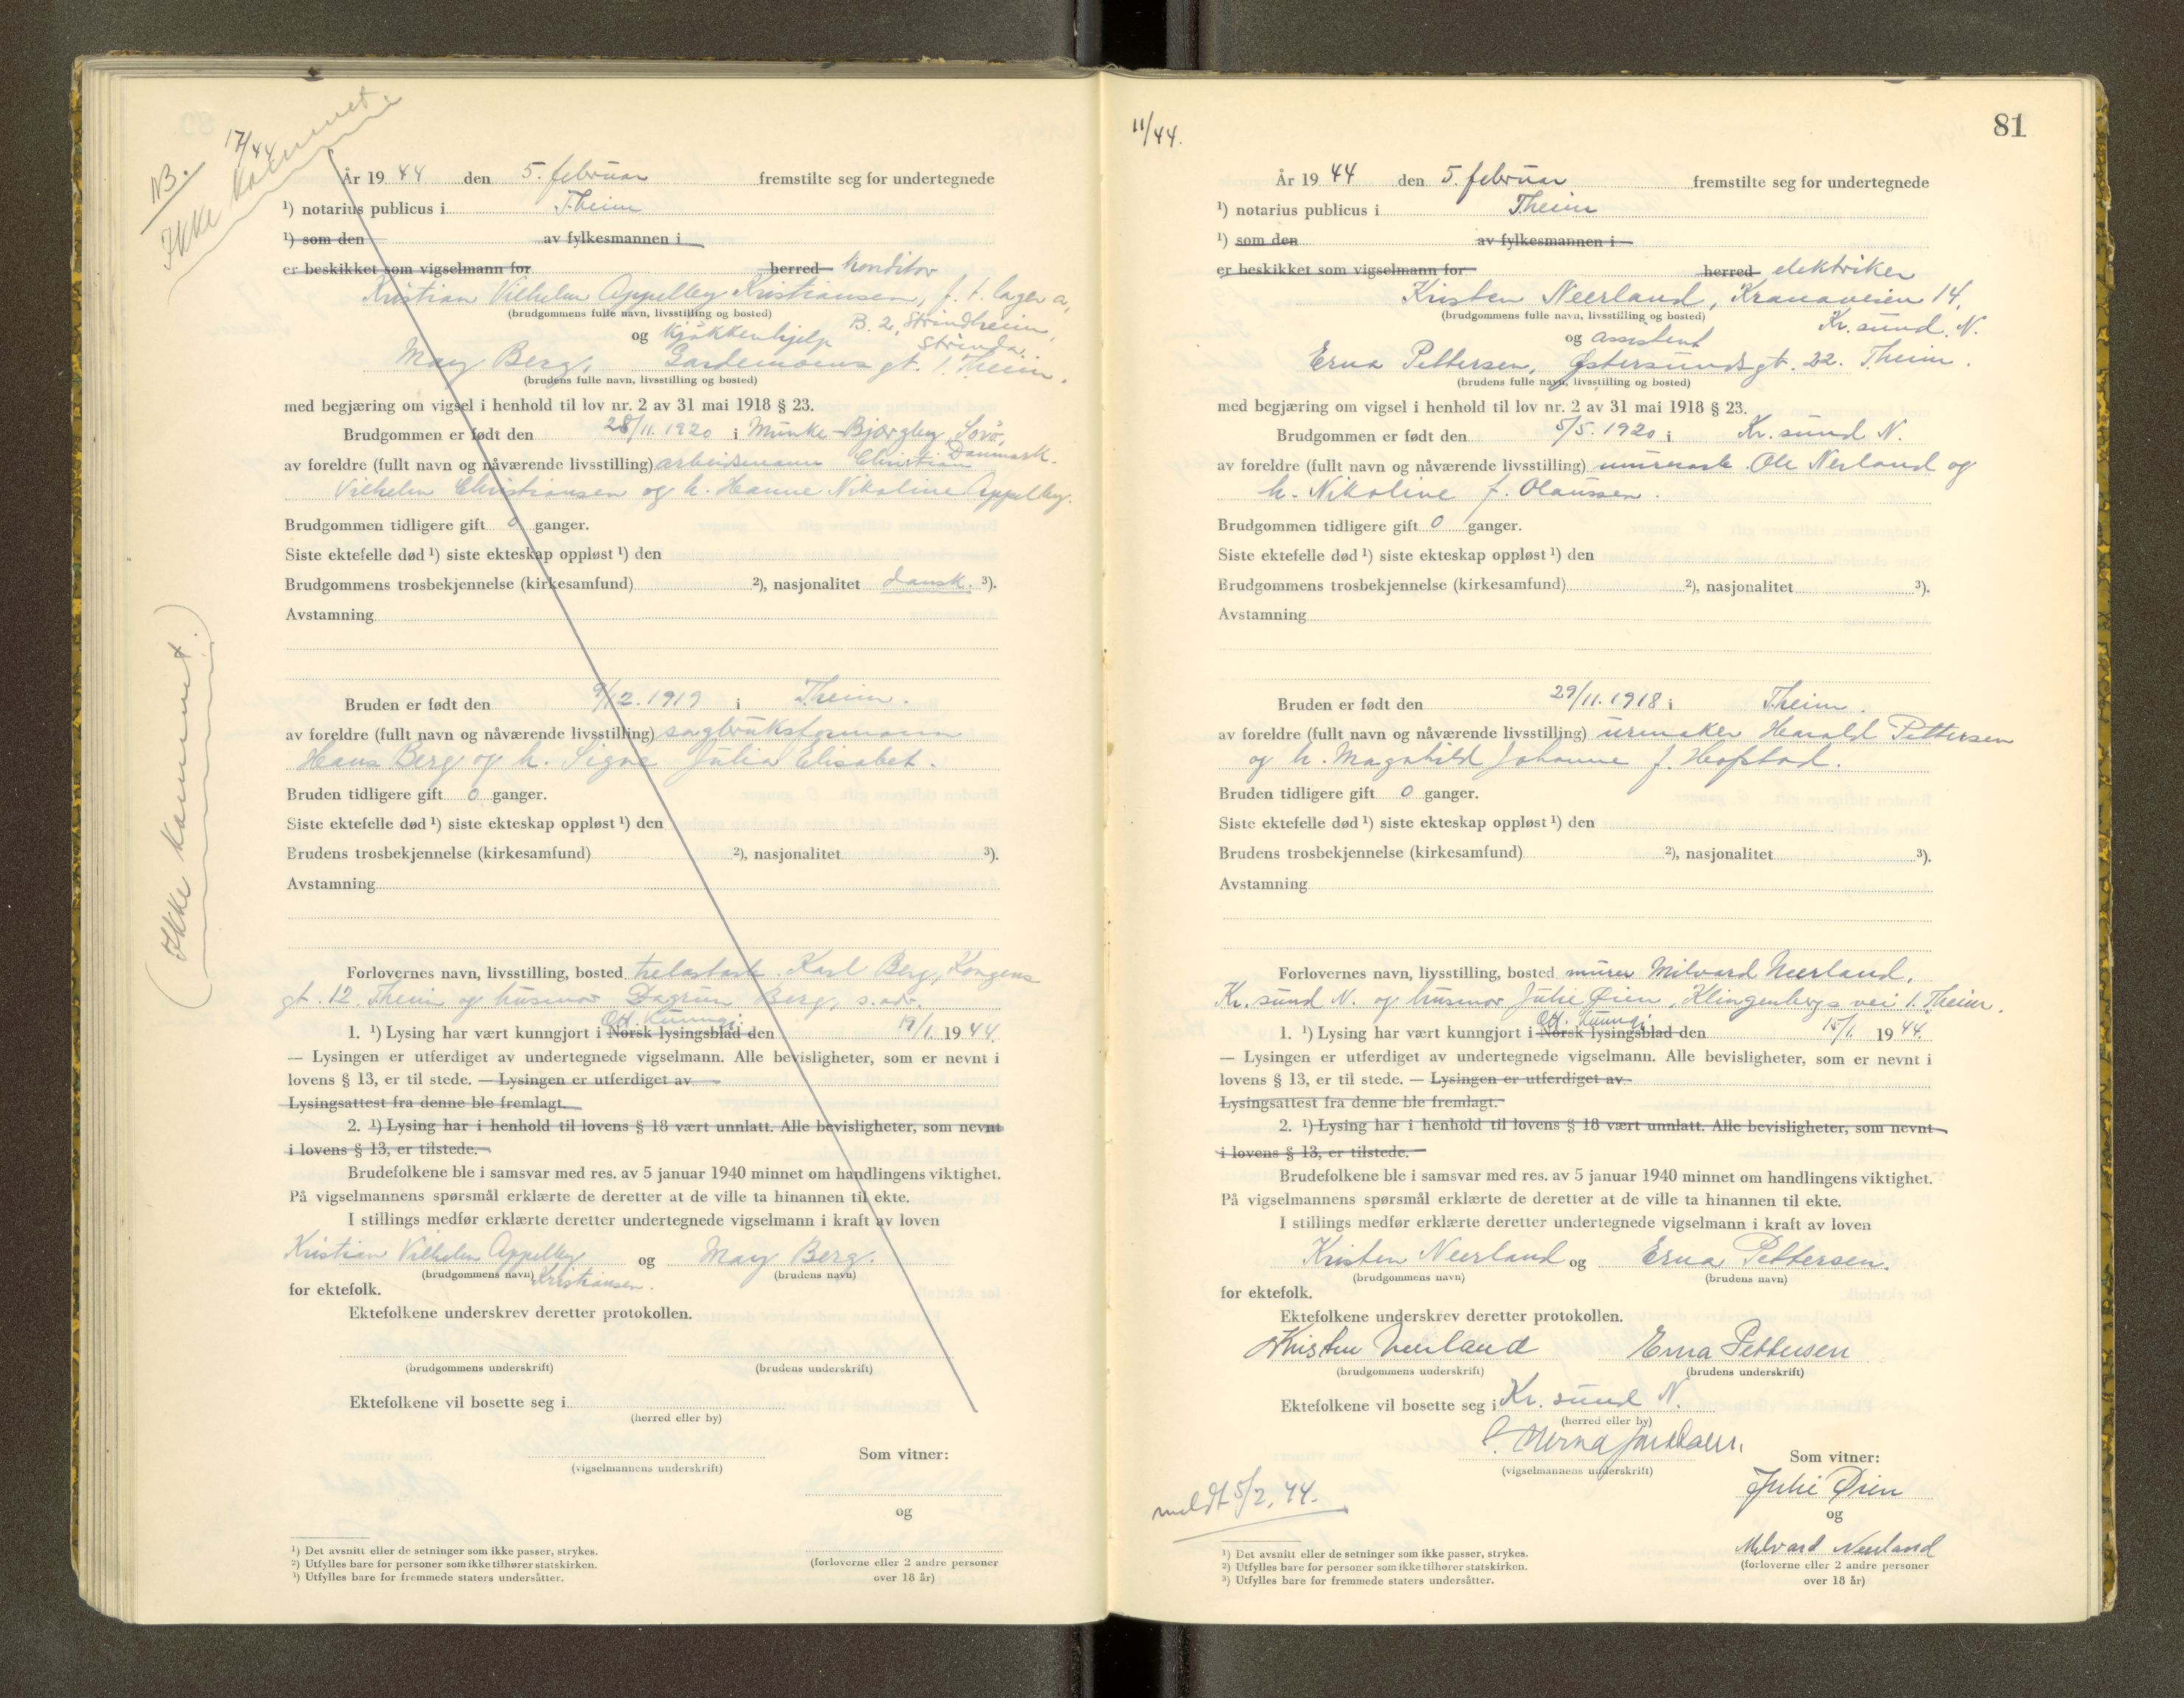 NB.
17/44
Ikke kommet.
År 19 44 den 5. februar fremstilte seg for undertegnede
¹) notarius publicus i T.heim
¹) som den av fylkesmannen i
er beskikket som vigselmann for herred konditor
Kristian Vilhelm Appelby Kristiansen, f. t. lager a,
(brudgommens fulle navn, livsstilling og bosted)
B. 2, Strindheim,
og kjøkkenhjelp Strinda.
May Berg, Gardemoens gt. 1. T.heim.
(brudens fulle navn, livsstilling og bosted)
med begjæring om vigsel i henhold til lov nr. 2 av 31 mai 1918 § 23.
Brudgommen er født den 28/11. 1920 i Munke-Bjørgby, Sorø,
Danmark.
av foreldre (fullt navn og nåværende livsstilling) arbeidsmann Christian
Vilhelm Christiansen og h. Hanne Nikoline Appelby.
Brudgommen tidligere gift 0 ganger.
Siste ektefelle død ¹) siste ekteskap oppløst ¹) den
Brudgommens trosbekjennelse (kirkesamfund) ²), nasjonalitet dansk. ³).
Avstamning
Bruden er født den 9/12. 1919 i T.heim.
av foreldre (fullt navn og nåværende livsstilling) sagbruksformann
Hans Berg og h. Signe Julia Elisabet.
Bruden tidligere gift 0 ganger.
Siste ektefelle død ¹) siste ekteskap oppløst ¹) den
Brudens trosbekjennelse (kirkesamfund) ²), nasjonalitet ³).
Avstamning
(Ikke kommet.)
Forlovernes navn, livsstilling, bosted trelastarb. Karl Berg, Kongens
gt. 12. T.heim og husmor Dagrun Berg, s. adr.
Off. Kunngj.
1. ¹) Lysing har vært kunngjort i Norsk lysingsblad den 19/1. 19 44.
— Lysingen er utferdiget av undertegnede vigselmann. Alle bevisligheter, som er nevnt i
lovens § 13, er til stede. — Lysingen er utferdiget av
Lysingsattest fra denne ble fremlagt.
2. ¹) Lysing har i henhold til lovens § 18 vært unnlatt. Alle bevisligheter, som nevnt
i lovens § 13, er tilstede.
Brudefolkene ble i samsvar med res. av 5 januar 1940 minnet om handlingens viktighet.
På vigselmannens spørsmål erklærte de deretter at de ville ta hinannen til ekte.
I stillings medfør erklærte deretter undertegnede vigselmann i kraft av loven
Kristian Vilhelm Appelby og May Berg.
(brudgommens navn) Kristiansen. (brudens navn)
for ektefolk.
Ektefolkene underskrev deretter protokollen.
(brudgommens underskrift) (brudens underskrift)
Ektefolkene vil bosette seg i
(herred eller by)
Som vitner:
(vigselmannens underskrift)
og
(forloverne eller 2 andre personer
over 18 år)
¹) Det avsnitt eller de setninger som ikke passer, strykes.
²) Utfylles bare for personer som ikke tilhører statskirken.
³) Utfylles bare for fremmede staters undersåtter.
81
11/44.
År 19 44 den 5. februar fremstilte seg for undertegnede
¹) notarius publicus i T.heim
¹) som den av fylkesmannen i
er beskikket som vigselmann for herred elektriker
Kristen Neerland, Kranaveien 14,
(brudgommens fulle navn, livsstilling og bosted)
Kr. sund. N.
og assistent
Erna Pettersen, Østersundsgt. 22. T.heim.
(brudens fulle navn, livsstilling og bosted)
med begjæring om vigsel i henhold til lov nr. 2 av 31 mai 1918 § 23.
Brudgommen er født den 5/5. 1920 i Kr. sund N.
av foreldre (fullt navn og nåværende livsstilling) murerarb. Ole Nerland og
h. Nikoline f. Olaussen.
Brudgommen tidligere gift 0 ganger.
Siste ektefelle død ¹) siste ekteskap oppløst ¹) den
Brudgommens trosbekjennelse (kirkesamfund) ²), nasjonalitet ³).
Avstamning
Bruden er født den 29/11. 1918 i T.heim.
av foreldre (fullt navn og nåværende livsstilling) urmaker Harald Pettersen
og h. Magnhild Johanne f. Hofstad.
Bruden tidligere gift 0 ganger.
Siste ektefelle død ¹) siste ekteskap oppløst ¹) den
Brudens trosbekjennelse (kirkesamfund) ²), nasjonalitet ³).
Avstamning
Forlovernes navn, livsstilling, bosted murer Milvard Neerland,
Kr. sund N. og husmor Julie Øien, Klingenbergs vei 1. T.heim.
Off. Kunngj.
1. ¹) Lysing har vært kunngjort i Norsk lysingsblad den 15/1. 19 44.
— Lysingen er utferdiget av undertegnede vigselmann. Alle bevisligheter, som er nevnt i
lovens § 13, er til stede. — Lysingen er utferdiget av
Lysingsattest fra denne ble fremlagt.
2. ¹) Lysing har i henhold til lovens § 18 vært unnlatt. Alle bevisligheter, som nevnt
i lovens § 13, er tilstede.
Brudefolkene ble i samsvar med res. av 5 januar 1940 minnet om handlingens viktighet.
På vigselmannens spørsmål erklærte de deretter at de ville ta hinannen til ekte.
I stillings medfør erklærte deretter undertegnede vigselmann i kraft av loven
Kristen Neerland og Erna Pettersen.
(brudgommens navn) (brudens navn)
for ektefolk.
Ektefolkene underskrev deretter protokollen.
Kristen Neerland Erna Pettersen
(brudgommens underskrift) (brudens underskrift)
Ektefolkene vil bosette seg i Kr. sund N.
(herred eller by)
Som vitner:
(vigselmannens underskrift)
Julie Øien
meldt 5/2. 44.
og
Milvard Neerland
(forloverne eller 2 andre personer
over 18 år)
¹) Det avsnitt eller de setninger som ikke passer, strykes.
²) Utfylles bare for personer som ikke tilhører statskirken.
³) Utfylles bare for fremmede staters undersåtter.